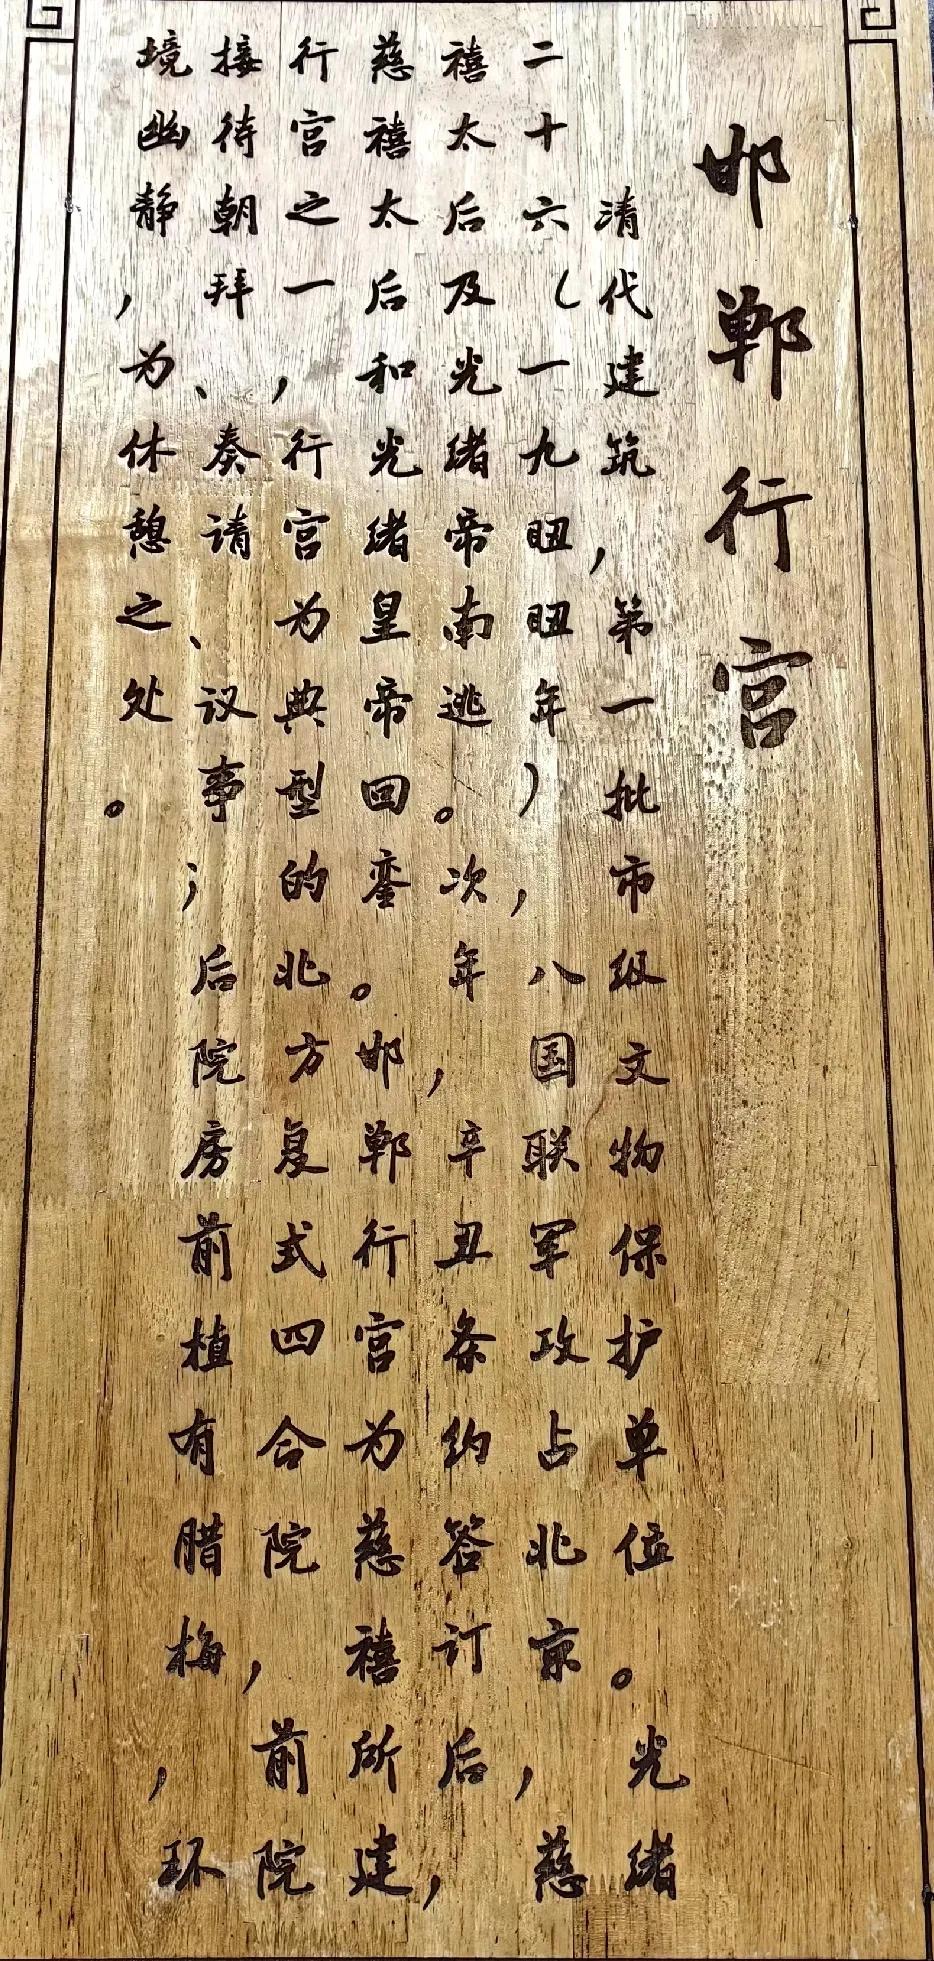 邯郸行宫
清代建筑，第一批市级文物保护单位。光绪
二十六（一九年），八国联军攻占北京，慈
禧太后及光绪帝南逃。次年，辛丑条约答订后，
慈禧太后和光绪皇帝回銮。邯郸行宫为慈禧所建
行宫之一，行宫为典型的北方复式四合院，前院
接待朝拜、奏请、议事；后院房前植有腊梅，环
境幽静，为休憩之处。